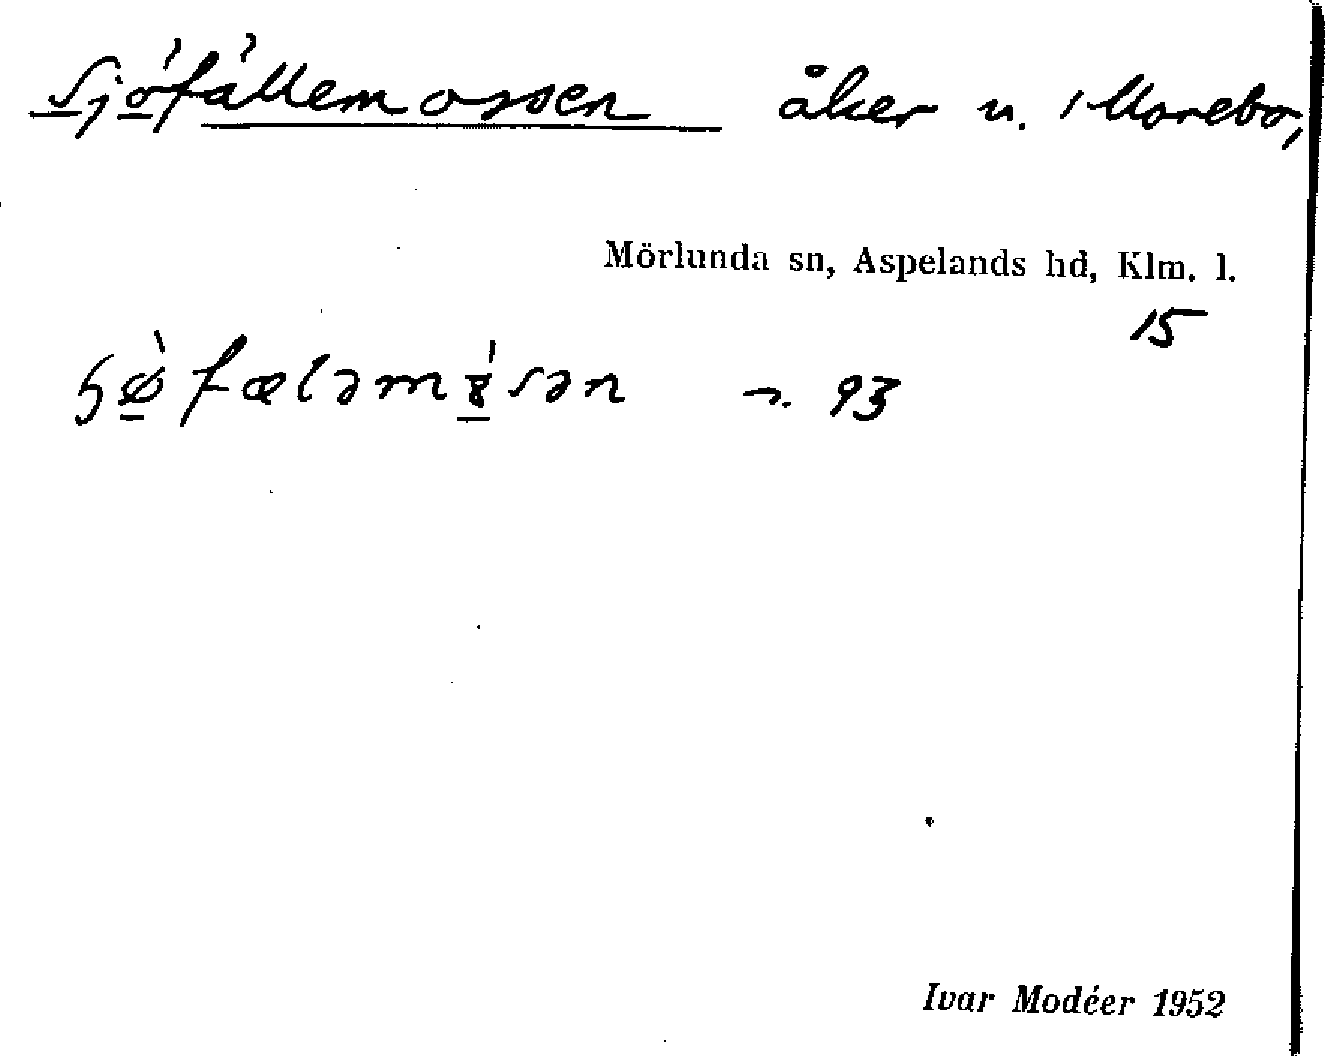 Sjöfällemossen åker n. Morebo,
Mörlunda sn, Aspelands hd, Klm. l.
15
n. 93
Ivar Modéer 1952